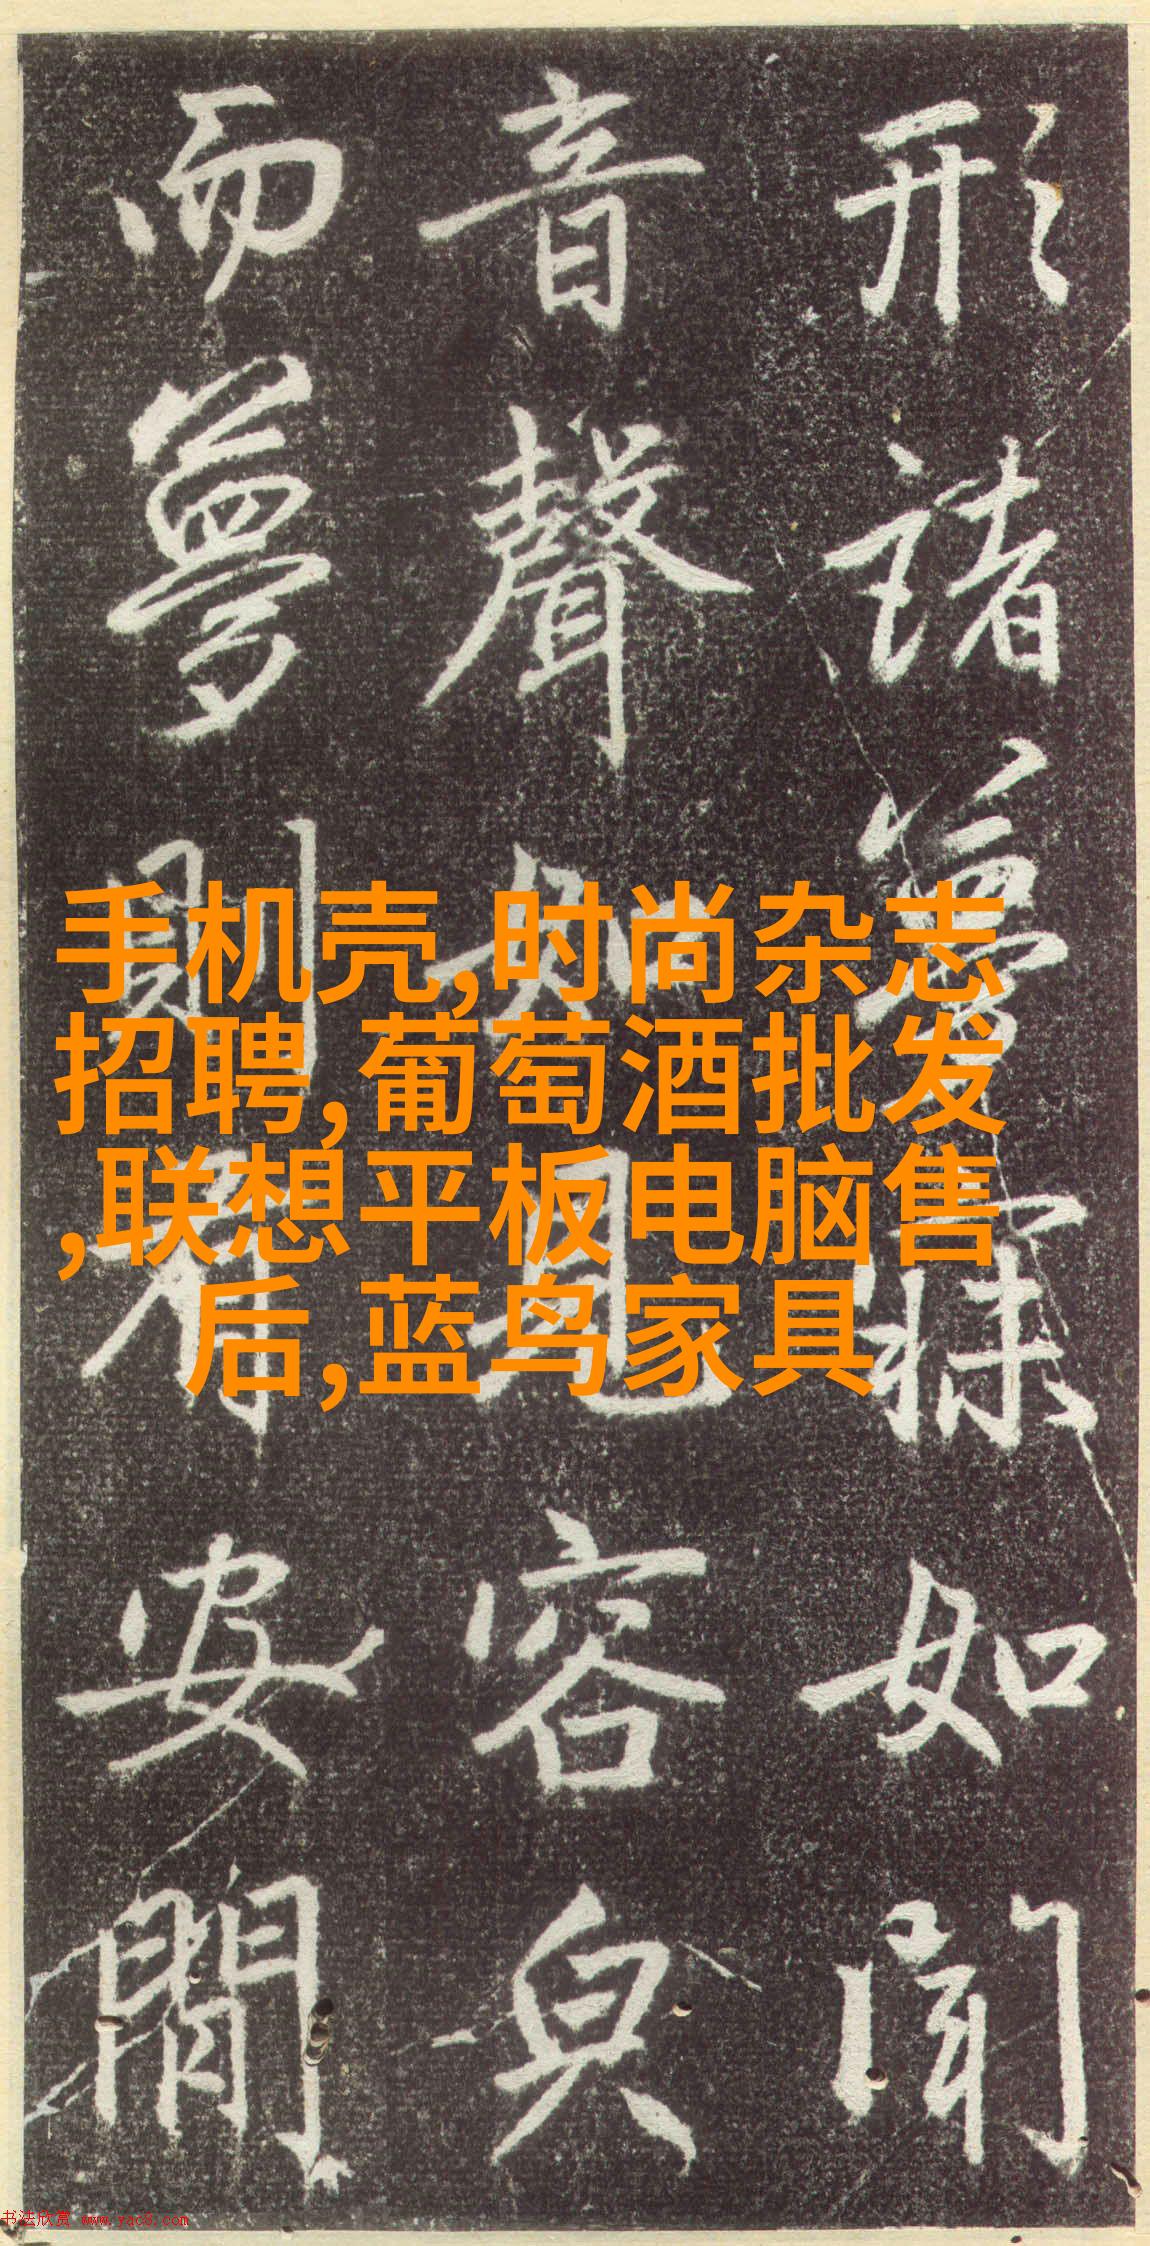 形諸夢寐如聞
音聲如見容皃
而夢則安閒
手机壳,时尚杂志
招聘,葡萄酒批发
,联想平板电脑售
后,蓝鸟家具
书法欣赏 www.yac8.com